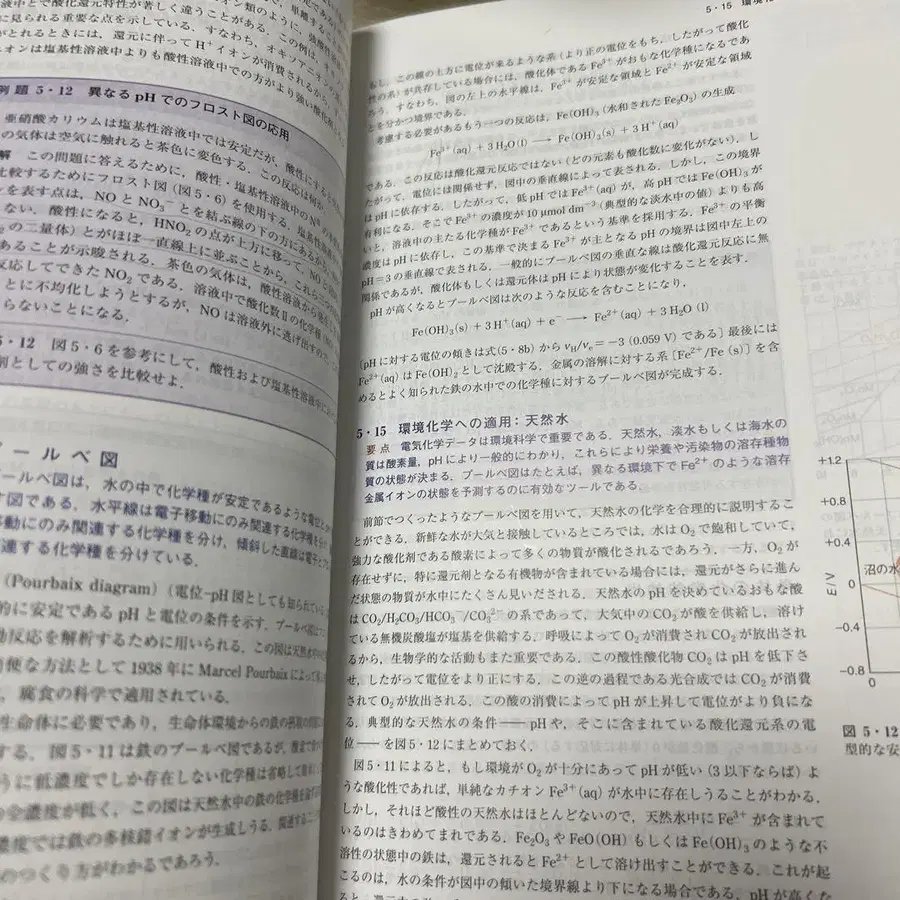 液中とで酸化還元特性が著しく違うことがある．この例は，
に見られる重要な点を示している．すなわち，オキソアニ
がとれるときには，還元に伴ってH⁺イオンが消費されるから，
オンは塩基性溶液中よりも酸性溶液中での方がより強い酸化剤
例題 5・12 異なるpHでのフロスト図の応用
亜硝酸カリウムは塩基性溶液中では安定だが，酸性にすると
の気体は空気に触れると茶色に変色する．この反応は何か
解 この問題に答えるために，酸性・塩基性溶液中のN
比較するためにフロスト図（図5・6）を使用する．塩基性
を表す点は，NOとNO₃⁻とを結ぶ線の下の方にある
ない．酸性になると，HNO₂の点が上方に移って，NOと
の二量体）とがほぼ一直線上に並ぶことから，これら
あることが示唆される．茶色の気体は，酸性溶液から
反応してできたNO₂である．溶液中で酸化数Ⅱの化学種
とに不均化しようとするが，NOは溶液外に逃げ出す
らないことになる．
5・12 図5・6を参考にして，酸性および塩基性溶液中に
剤としての強さを比較せよ．
ールベ図
ールベ図は，水の中で化学種が安定であるような電位と
す図である．水平線は電子移動にのみ関連する化学種
移動にのみ関連する化学種を分け，傾斜した直線は電子と
連する化学種を分けている．
（Pourbaix diagram）（電位-pH図としても知られている
的に安定であるpHと電位の条件を示す．プールベ図は
動反応を解析するために用いられる．この図は天然水中
便な方法として1938年にMarcel Pourbaixによって
，腐食の科学で適用されている．
生命体に必要であり，生命体環境からの鉄の摂取の
する．図5・11は鉄のプールベ図であるが，
うに低濃度でしか存在しない化学種は省略して
の全濃度が低く，この図は天然水中の鉄の化学種を
濃度では鉄の多核錯イオンが生成しうる．関連する
のつくり方がわかるであろう．
5・15 環境化
もし，この線の上方に電位が来るような系（より正の電位をもち，したがって酸化
性の系）が共存している場合には，酸化体であるFe³⁺がおもな化学種になるであ
ろう．すなわち，図の左上の水平線は，Fe³⁺が安定な領域とFe²⁺が安定な領域
とを分かつ境界である．
考慮する必要があるもう一つの反応は，Fe(OH)₃（水和されたFe₂O₃）の生成
Fe³⁺(aq) + 3H₂O(l) ⟶ Fe(OH)₃(s) + 3H⁺(aq)
である．この反応は酸化還元反応ではない（どの元素も酸化数に変化がない）．し
たがって，電位には関係せず，図中の垂直線によって表される．しかし，この境界
はpHに依存する．したがって，低pHではFe³⁺(aq)が，高pHではFe(OH)₃が
有利になる．そこでFe³⁺の濃度が10 μmol dm⁻³（典型的な淡水中の値）よりも高
いと，溶液中の主たる化学種がFe³⁺であるという基準を採用する．Fe³⁺の平衡
濃度はpHに依存し，この基準で決まるFe³⁺が主となるpHの境界は図中左上の
pH=3の垂直線で表される．一般的にプールベ図の垂直な線は酸化還元反応に無
関係であるが，酸化体もしくは還元体はpHにより状態が変化することを表す．
pHが高くなるとプールベ図は次のような反応を含むことになり，
Fe(OH)₃(s) + 3H⁺(aq) + e⁻ ⟶ Fe²⁺(aq) + 3H₂O (l)
［pHに対する電位の傾きは式(5・8b)からνH/νe = −3 (0.059 V)である］最後には
Fe²⁺(aq)はFe(OH)₂として沈殿する．金属の溶解に対する系［Fe²⁺/Fe (s)］を含
めるとよく知られた鉄の水中での化学種に対するプールベ図が完成する．
5・15 環境化学への適用：天然水
要点 電気化学データは環境科学で重要である．天然水，淡水もしくは海水の
質は酸素量，pHにより一般的にわかり，これらにより栄養や汚染物の溶存種物
質の状態が決まる．プールベ図はたとえば，異なる環境下でFe²⁺のような溶存
金属イオンの状態を予測するのに有効なツールである．
前節でつくったようなプールベ図を用いて，天然水の化学を合理的に説明するこ
とができる．新鮮な水が大気と接触しているところでは，水はO₂で飽和していて，
強力な酸化剤である酸素によって多くの物質が酸化されるであろう．一方，O₂が
存在せずに，特に還元剤となる有機物が含まれている場合には，還元がさらに進ん
だ状態の物質が水中にたくさん見いだされる．天然水のpHを決めているおもな酸
はCO₂/H₂CO₃/HCO₃⁻/CO₃²⁻の系であって，大気中のCO₂が酸を供給し，溶け
ている無機炭酸塩が塩基を供給する．呼吸によってO₂が消費されCO₂が放出され
るから，生物学的な活動もまた重要である．この酸性酸化物CO₂はpHを低下さ
せ，したがって電位をより正にする．この逆の過程である光合成ではCO₂が消費
されてO₂が放出される．この酸の消費によってpHが上昇して電位がより負にな
る．典型的な天然水の条件 ── pHや，そこに含まれている酸化還元系の電
位 ── を図5・12にまとめておく．
図5・11によると，もし環境がO₂が十分にあってpHが低い（3以下ならば）よ
うな酸化性であれば，単純なカチオンFe³⁺(aq)が水中に存在しうることがわかる．
しかし，それほど酸性の天然水はほとんどないので，天然水中にFe³⁺が含まれて
いるのはきわめてまれである．Fe₂O₃やFeO(OH)もしくはFe(OH)₃のような不
溶性の状態中の鉄は，還元されるとFe²⁺として溶け出すことができる．これが起
こるのは，水の条件が図中の傾いた境界線より下になる場合である．pHが高くな
+1.2
+0.8
+0.4
0
−0.4
−0.8
E/V
沼の水
0
図 5・12
型的な安